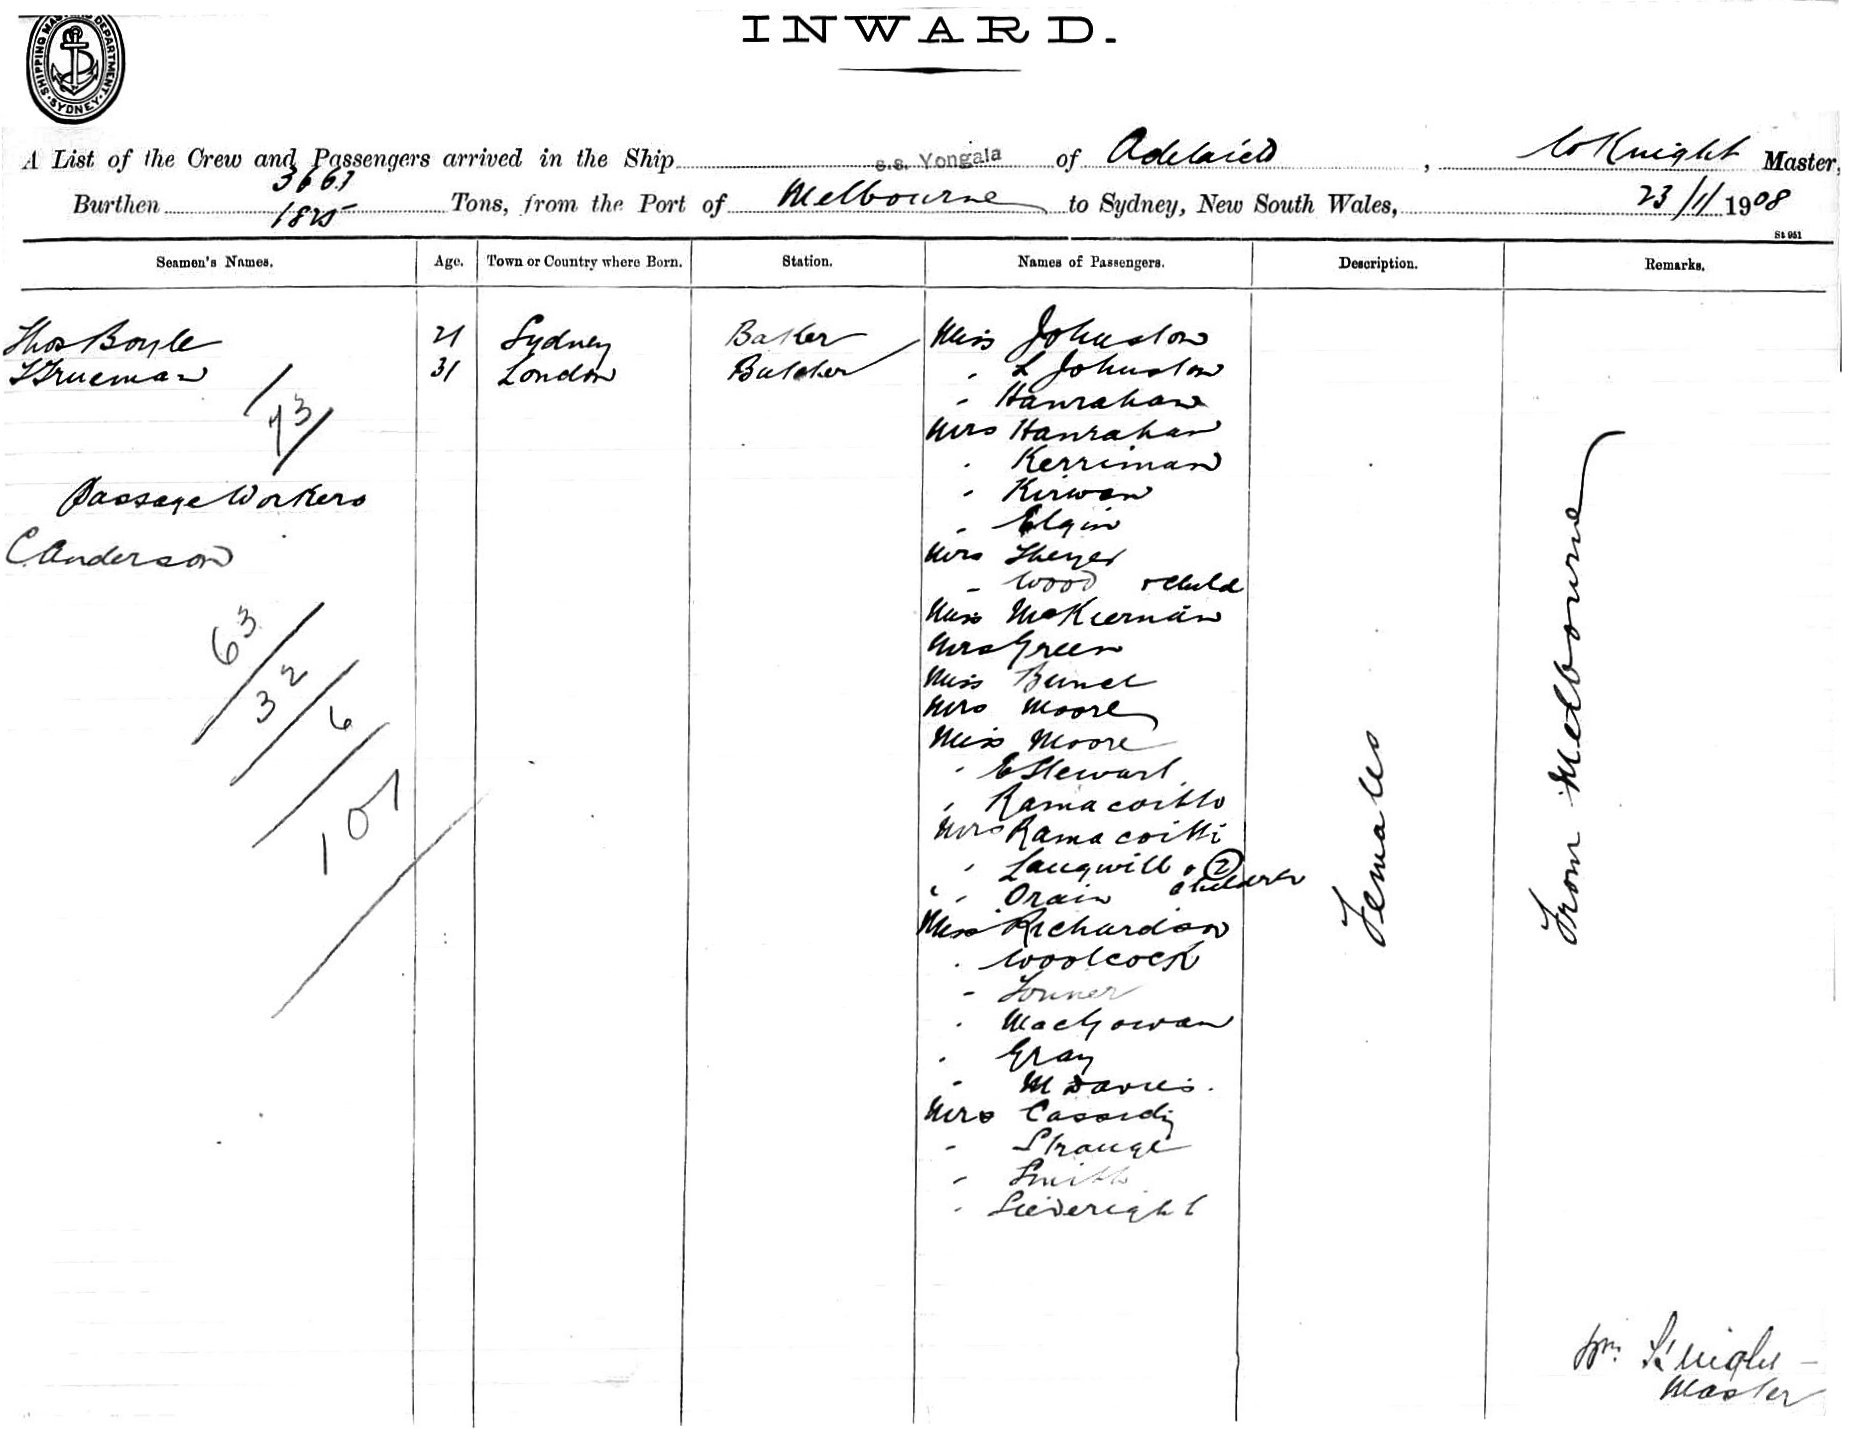 INWARD.
SHIPPING MASTERS DEPARTMENT SYDNEY
A List of the Crew and Passengers arrived in the Ship s.s. Yongala of Adelaide, W Knight Master,
Burthen 3661 1825 Tons, from the Port of Melbourne to Sydney, New South Wales, 23/11/1908
St 951
Seamen's Names. Age. Town or Country where Born. Station. Names of Passengers. Description. Remarks.
Thos Boyle 21 Sydney Baker Miss Johnston
Trueman 31 London Butcher " L Johnston
73
" Hanrahan
Mrs Hanrahan
" Kerriman
Passage Workers
" Kirwan
" Elgin
C Anderson
Mrs
" Wood & child
Miss McKiernan
63
Mrs Green
32
Miss
6
Mrs Moore
Miss Moore
" E Stewart
107
" Ramacoitti
Mrs Ramacoitti
" Langwill & 2 children
" " Orain
Miss Richardson
" Woolcock
"
" MacGowan
" Gray
" M Davies.
Mrs Cassidy
" Strange
" Smith
" Sieveright
Females
From Melbourne
Wm. Knight
Master